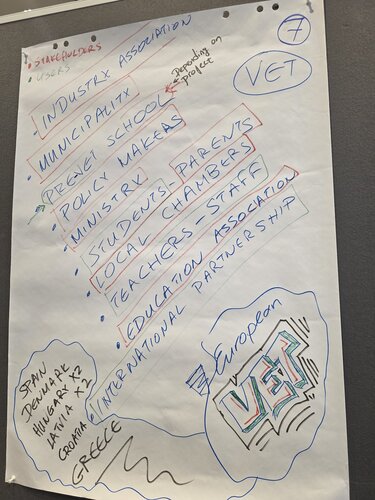 • STAKEHOLDERS
• USERS
7
VET
- INDUSTRY ASSOCIATION
• MUNICIPALITY
PREVET SCHOOL
Depending on
project
• POLICY MAKERS
• MINISTRY
• STUDENTS - PARENTS
• LOCAL CHAMBERS
• TEACHERS - STAFF
• EDUCATION ASSOCIATION
• INTERNATIONAL PARTNERSHIP
SPAIN
DENMARK
HUNGARY x2
LATVIA x2
CROATIA
GREECE
European
VET